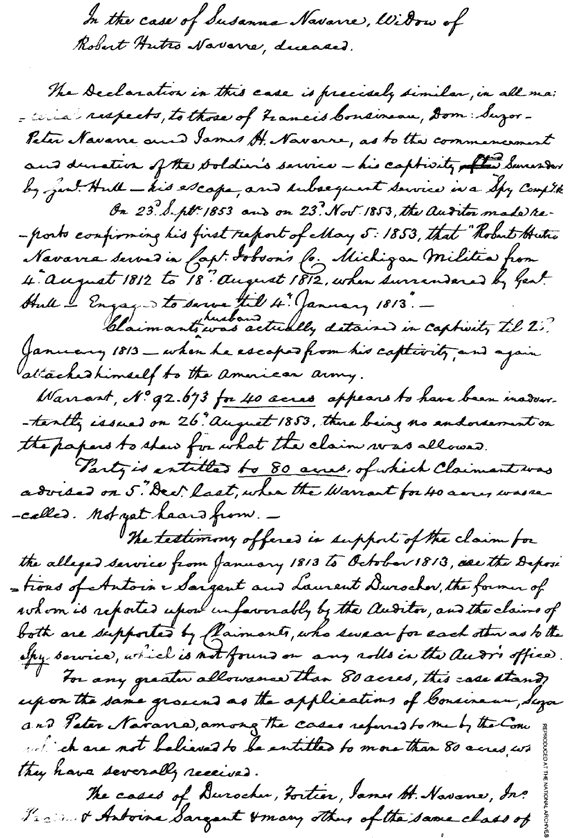 In the case of Susanna Navarre, Widow of
Robert Hutro Navarre, deceased.
The Declaration in this case is precisely similar, in all ma-
respects, to those of Francis Cousineau, Dom: Suzor-
Peter Navarre and James H. Navarre, as to the commencement
and duration of the Soldier's service – his captivity, Surrender
by Genl. Hull – his escape, and subsequent service in a Spy Compy &c
On 23d. Sept. 1853 and on 23d. Novr. 1853, the Auditor made re-
-ports confirming his first report of May 5. 1853, that "Robert Hutro
Navarre served in Capt. Jobson's Co. Michigan Militia from
4th August 1812 to 18th August 1812, when surrendered by Genl.
Hull – Engaged to serve til 4th January 1813". –
Claimant's husband was actually detained in captivity til
January 1813 – when he escaped from his captivity, and again
attached himself to the American army.
Warrant, No 92.673 for 40 acres appears to have been inadver-
-tently issued on 26th August 1853, there being no endorsement on
the papers to shew for what the claim was allowed.
Party is entitled to 80 acres, of which Claimant was
advised on 5th Decr. last, when the Warrant for 40 acres was re-
-called. Not yet heard from. –
The testimony offered in support of the claim for
the alleged service from January 1813 to October 1813, are the Deposi
-tions of Antoine Sargent and Laurent Durocher, the former of
whom is reported upon unfavorably by the Auditor, and the claims of
both are supported by Claimants, who swear for each other as to the
Spy service, which is not found on any rolls in the Audr's office.
For any greater allowance than 80 acres, this case stands
upon the same ground as the applications of Cousineau, Suzor
and Peter Navarre, among the cases referred to me by the Com
which are not believed to be entitled to more than 80 acres,
they have severally received.
The cases of Durocher, Fortier, James H. Navarre, Jno.
& Antoine Sargent & many others of the same class of
REPRODUCED AT THE NATIONAL ARCHIVES